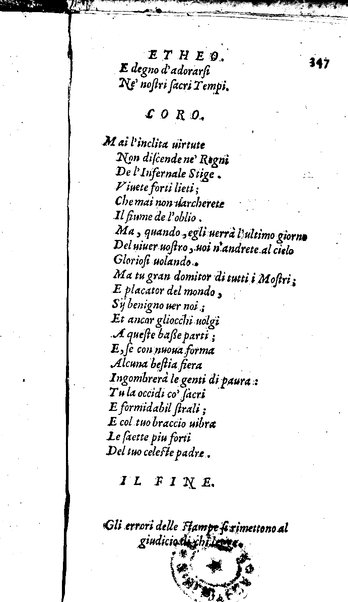 ETHEO.
347
E degno d'adorarsi
Ne' nostri sacri Tempi.
CORO.
Mai l'inclita uirtute
Non discende ne' Regni
De l'Infernale Stige.
Viuete forti lieti;
Che mai non uarcherete
Il fiume de l'oblio.
Ma, quando, egli uerrà l'ultimo giorno
Del uiuer uostro, uoi n'andrete al cielo
Gloriosi uolando.
Ma tu gran domitor di tutti i Mostri;
E placator del mondo,
Sij benigno uer noi;
Et ancor gliocchi uolgi
A queste basse parti;
E, se con nuoua forma
Alcuna bestia fiera
Ingombrerà le genti di paura:
Tu la occidi co' sacri
E formidabil strali;
E col tuo braccio uibra
Le saette piu forti
Del tuo celeste padre.
IL FINE.
Gli errori delle stampe si rimettono al
giudicio di chi legge.